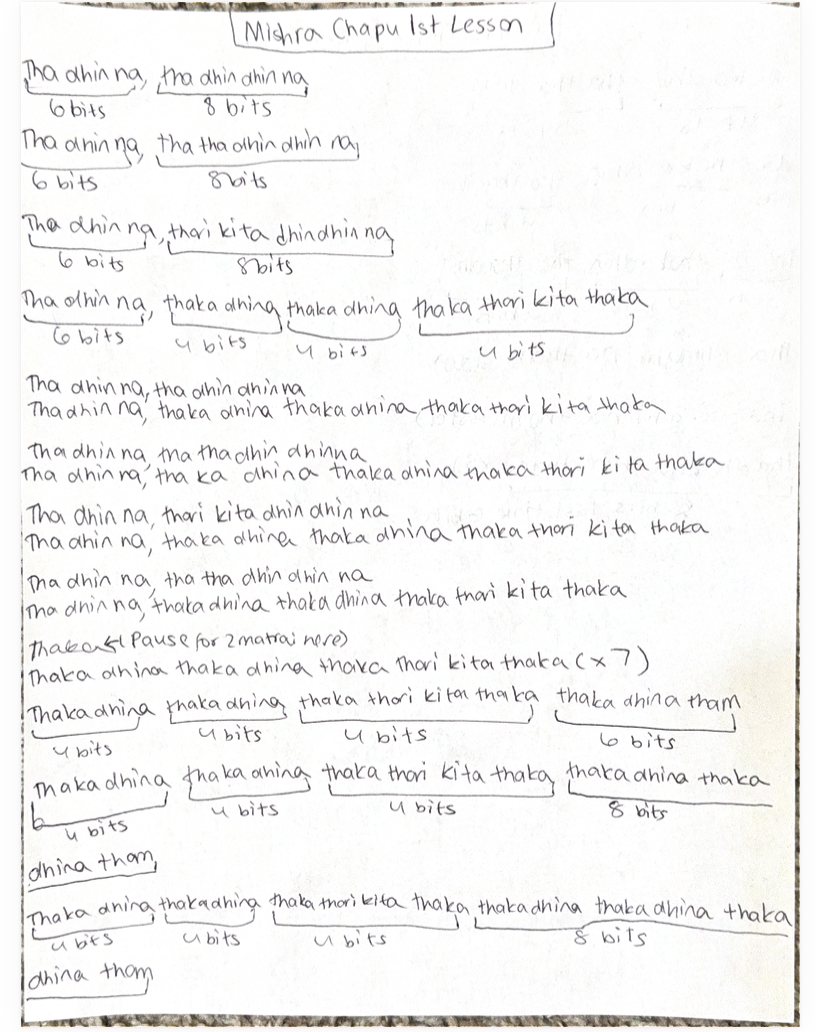 Mishra Chapu 1st Lesson
Tha dhin na, tha dhin dhin na
6 bits 8 bits
Tha dhin na, tha tha dhin dhin na
6 bits 8 bits
Tha dhin na, thari kita dhin dhin na
6 bits 8 bits
Tha dhin na, thaka dhina thaka dhina thaka thari kita thaka
6 bits 4 bits 4 bits 4 bits
Tha dhin na, tha dhin dhin na
Tha dhin na, thaka dhina thaka dhina thaka thari kita thaka
Tha dhin na, tha tha dhin dhin na
Tha dhin na, tha ka dhina thaka dhina thaka thari kita thaka
Tha dhin na, thari kita dhin dhin na
Tha dhin na, thaka dhina thaka dhina thaka thari kita thaka
Tha dhin na, tha tha dhin dhin na
Tha dhin na, thaka dhina thaka dhina thaka thari kita thaka
thaka (Pause for 2 matrai here)
Thaka dhina thaka dhina thaka thari kita thaka (x 7)
Thaka dhina thaka dhina thaka thari kita thaka thaka dhina tham
4 bits 4 bits 4 bits 6 bits
Thaka dhina thaka dhina thaka thari kita thaka thaka dhina thaka
4 bits 4 bits 4 bits 8 bits
dhina tham
Thaka dhina thaka dhina thaka thari kita thaka thaka dhina thaka dhina thaka
4 bits 4 bits 4 bits 8 bits
dhina tham